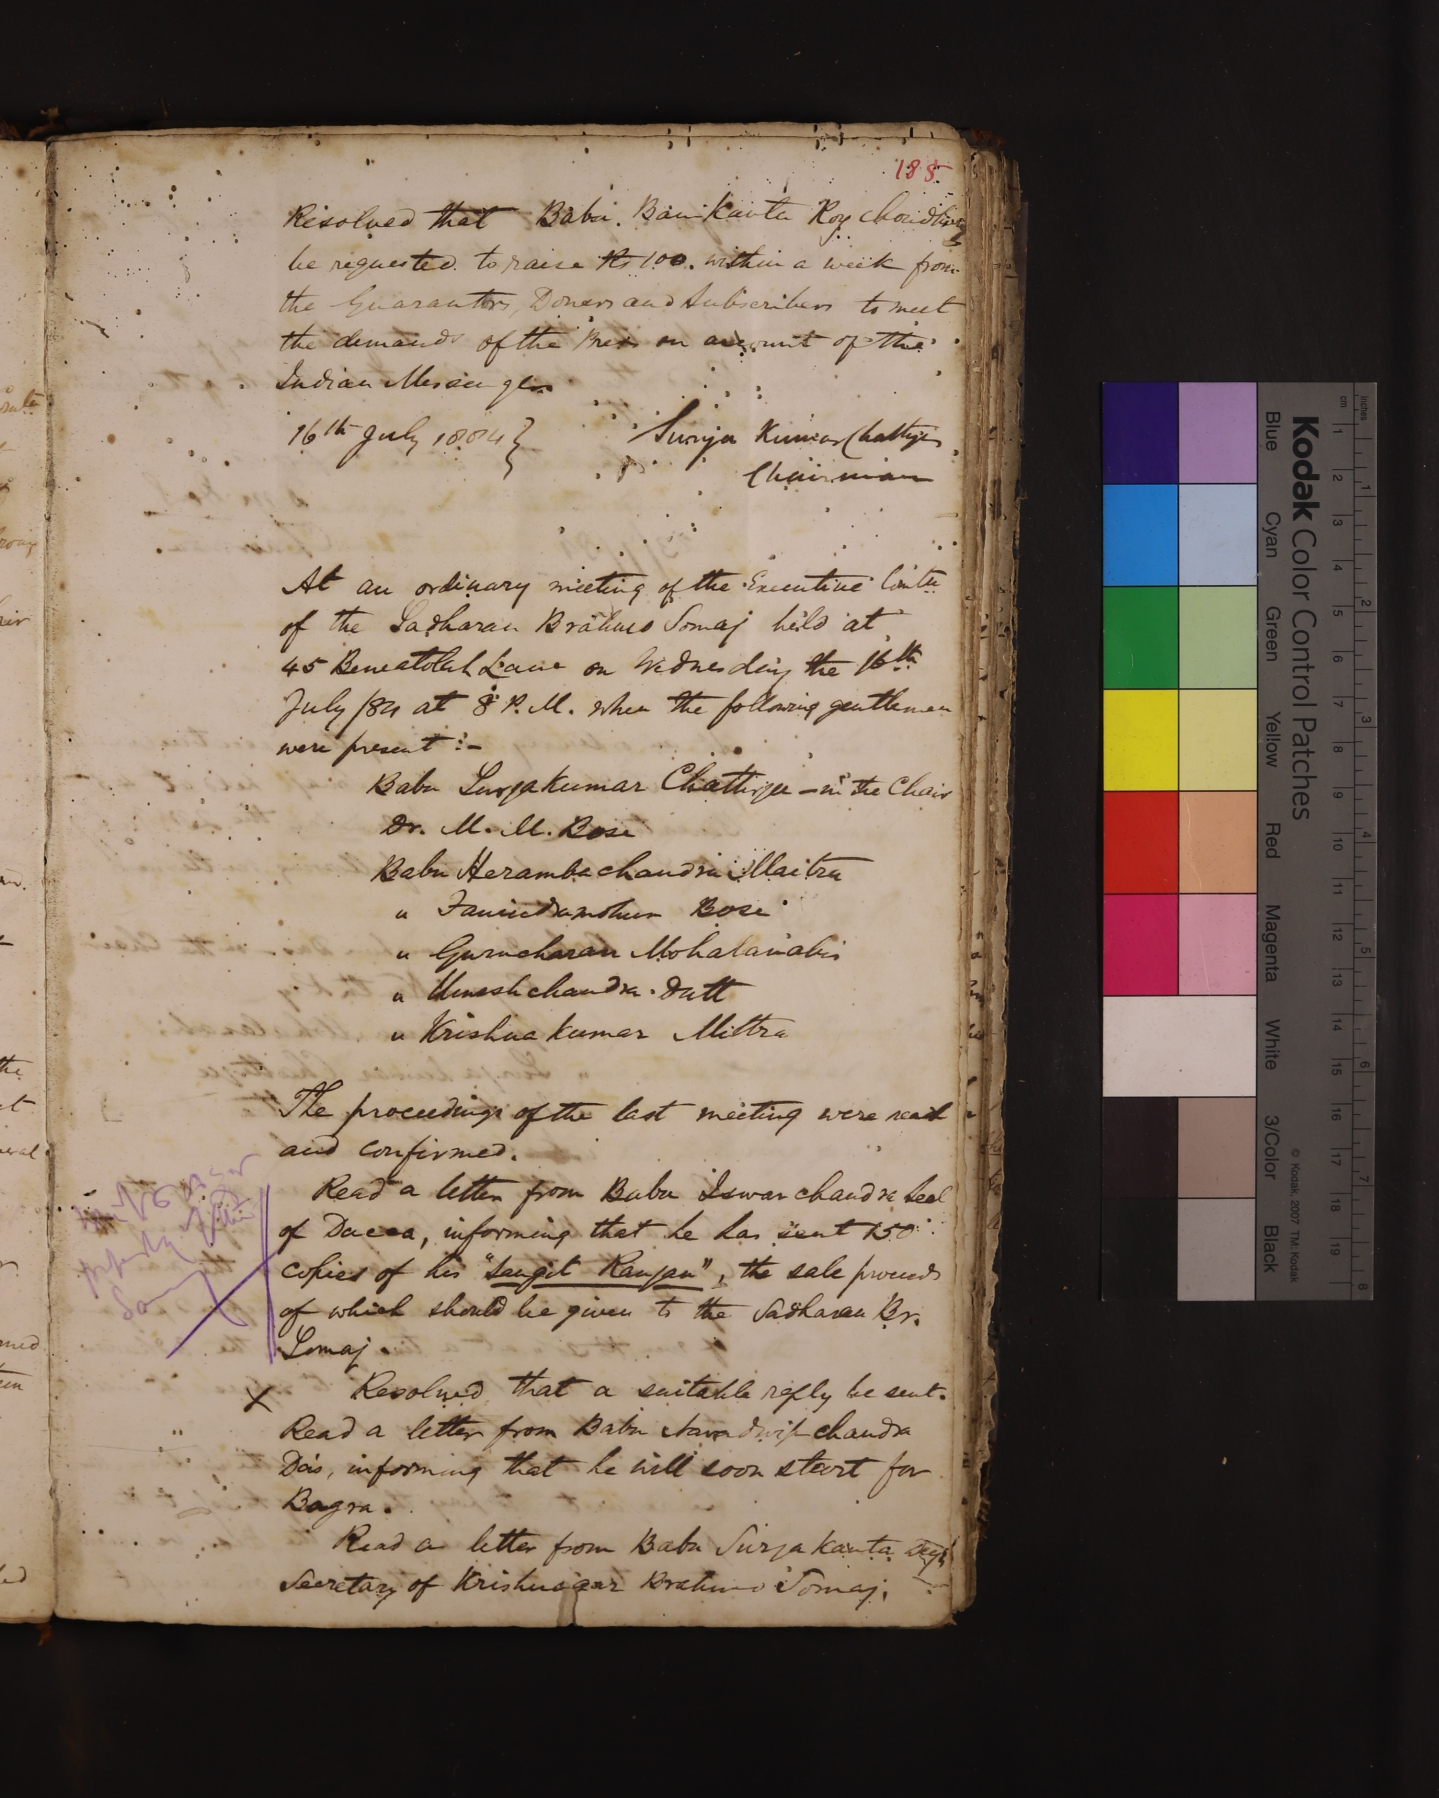 185
Resolved that Babu Banikanta Roy Choudhury
be requested to raise Rs 100. within a week from
the Guarantors, Doners and Subscribers to meet
the demands of the Press on account of the
Indian Messenger
16th July 1884}
Surja Kumar Chatterjee
Chairman
At an ordinary meeting of the Executive Comtee
of the Sadharan Brahmo Somaj held at
45 Beneatolah Lane on Wednesday the 16th
July/84 at 8 P.M. when the following gentlemen
were present :-
Babu Surjakumar Chatterjee — in the Chair
Dr. M. M. Bose
Babu Herambachandra Maitra
" Fanindramohun Bose
" Gurucharan Mohalanabis
" Umeshchandra Dutt
" Krishnakumar Mittra
The proceedings of the last meeting were read
and confirmed.
Read a letter from Babu Iswarchandra Seal
of Dacca, informing that he has sent 150
copies of his "Sangit Ranjan", the sale proceeds
of which should be given to the Sadharan Br.
Somaj.
X Resolved that a suitable reply be sent.
Read a letter from Babu Navadwipchandra
Das, informing that he will soon start for
Bogra.
Read a letter from Babu Surjakanta
Secretary of Krishnagar Brahmo Somaj,
Kodak Color Control Patches
Blue Cyan Green Yellow Red Magenta White 3/Color Black
© Kodak, 2007 TM: Kodak
inches 1 2 3 4 5 6 7 8
cm 1 2 3 4 5 6 7 8 9 10 11 12 13 14 15 16 17 18 19